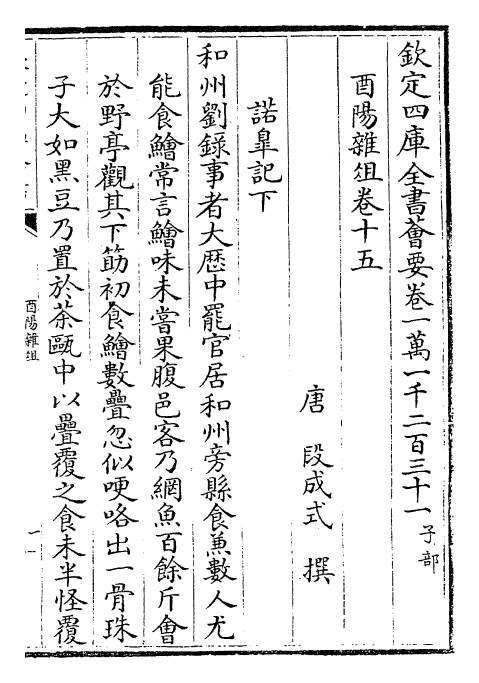 欽定四庫全書薈要卷一萬一千二百三十一子部
酉陽雜俎卷十五
唐 段成式 撰
諾臯記下
和州劉錄事者大歴中罷官居和州旁縣食兼數人尤
能食鱠常言鱠味未嘗果腹邑客乃網魚百餘斤會
於野亭觀其下筯初食鱠數疊忽似哽咯出一骨珠
子大如黑豆乃置於茶甌中以疊覆之食未半怪覆
酉陽雜俎
一